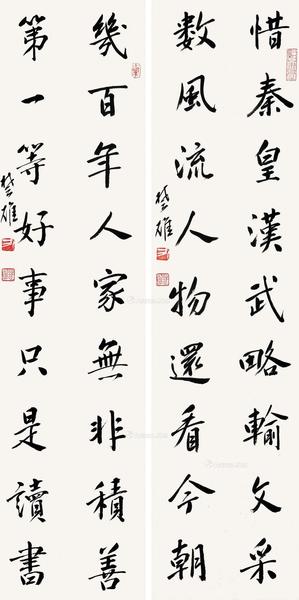 惜秦皇漢武略輸文采
數風流人物還看今朝
樊雄
幾百年人家無非積善
第一等好事只是讀書
樊雄